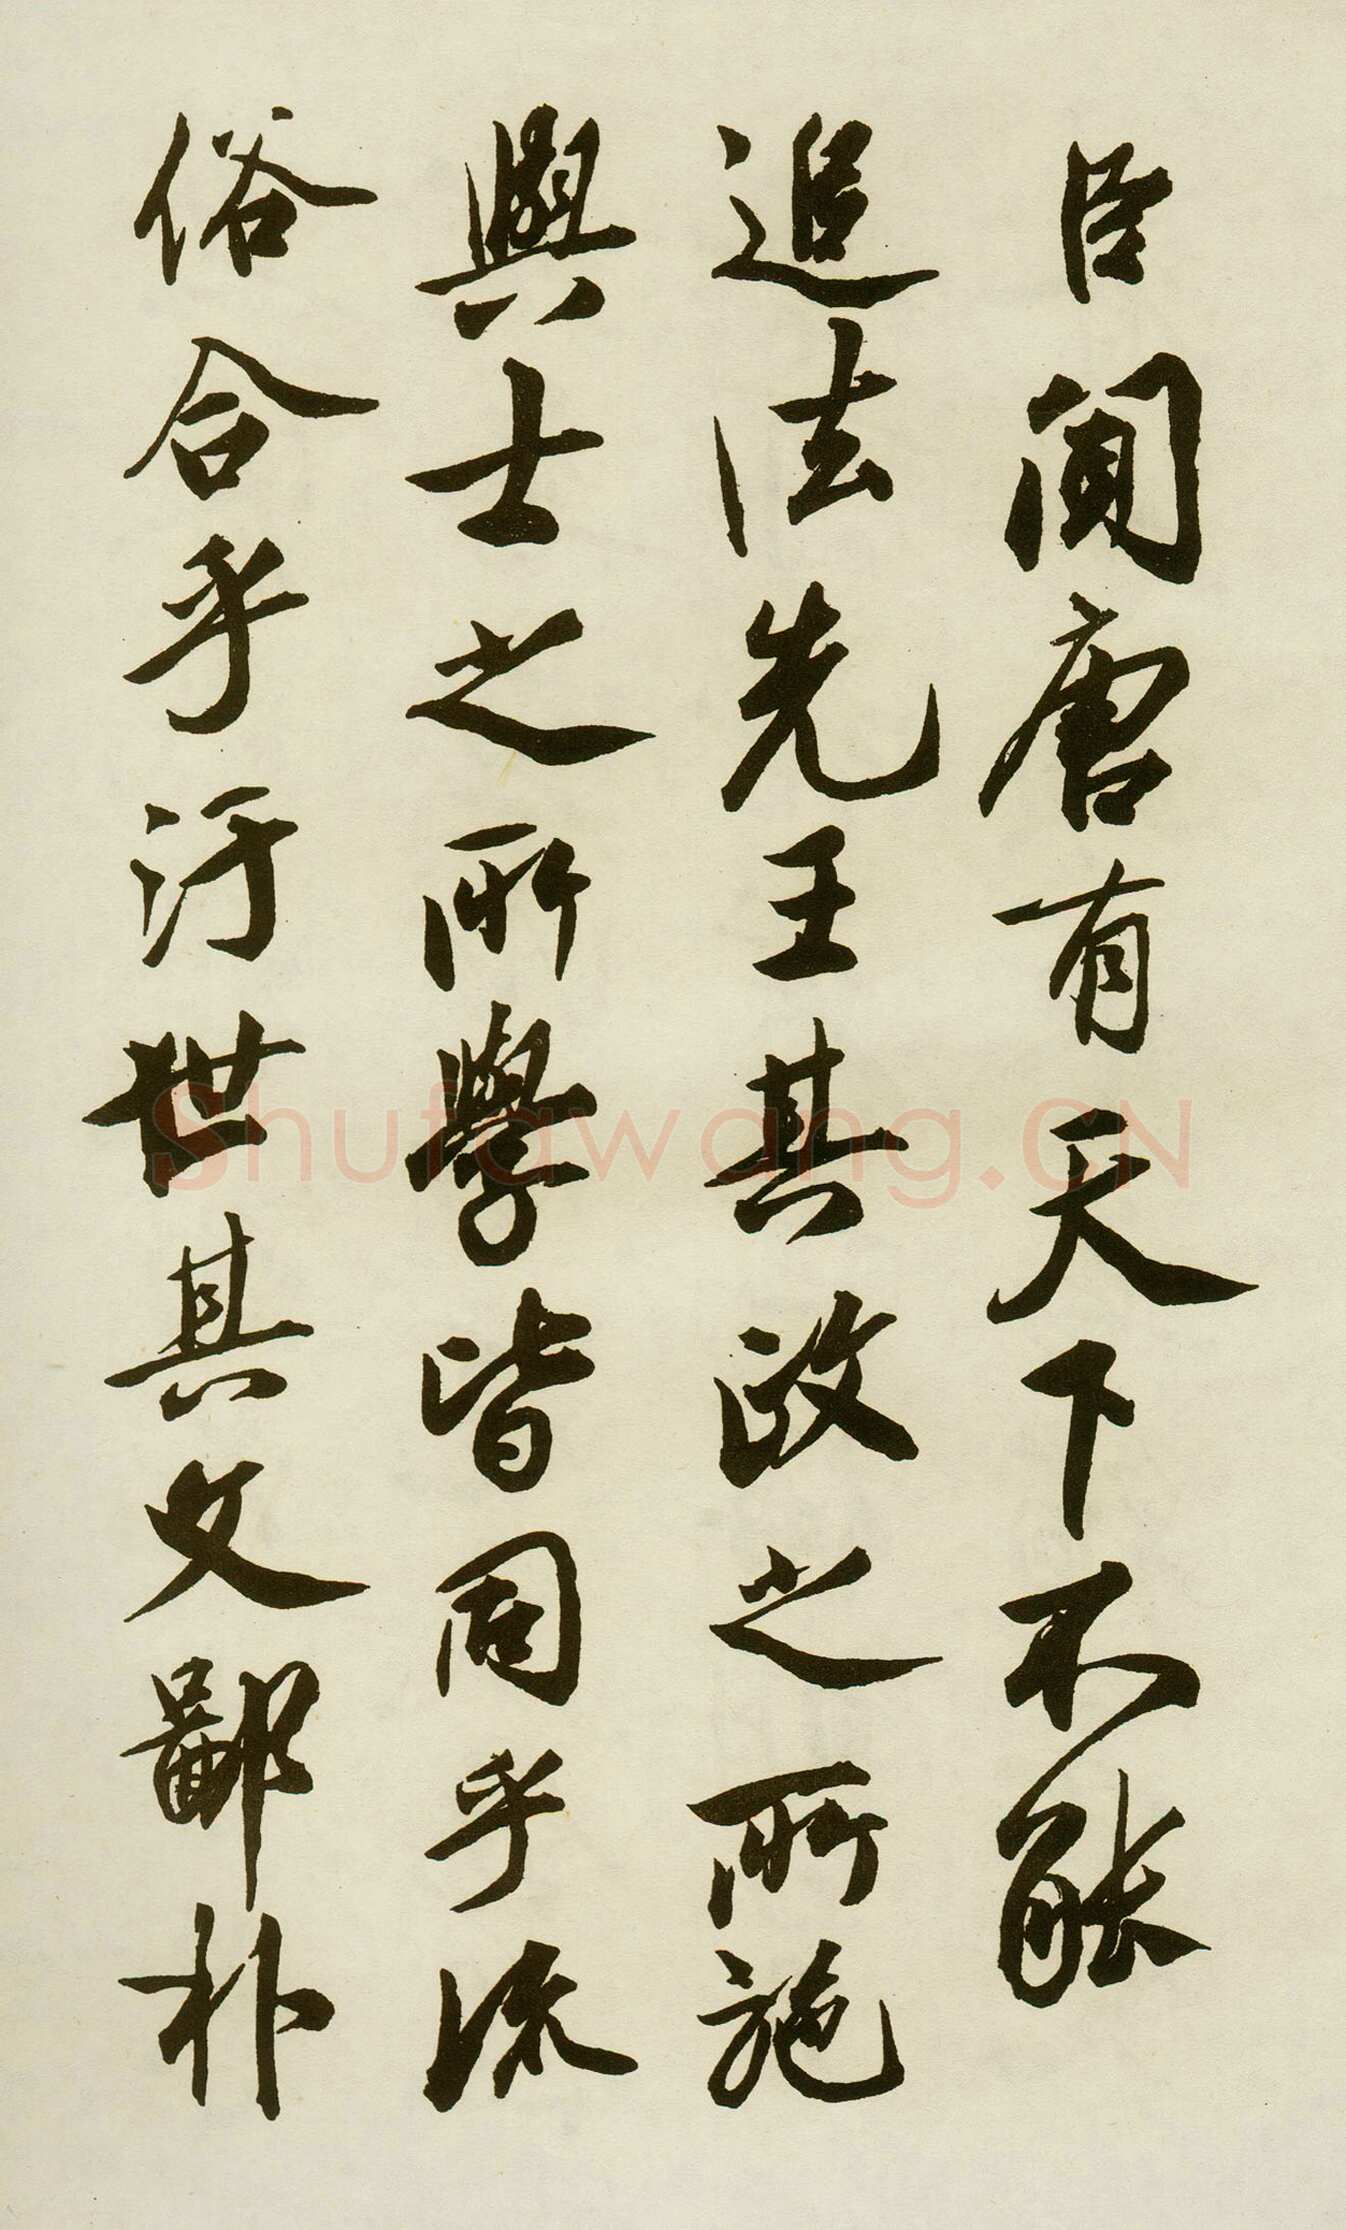 臣聞唐有天下不能
追法先王其政之所施
與士之所學皆同乎流
俗合乎汙世其文鄙朴
Shufawang.CN